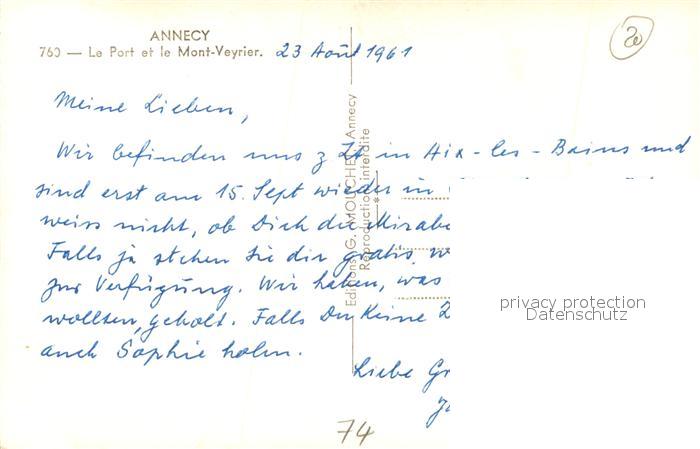 ANNECY
760 — Le Port et le Mont-Veyrier. 23 Août 1961
20
Meine Lieben,
Wir befinden uns z Zt in Aix-les-Bains und
sind erst am 15. Sept wieder in
weiss nicht, ob Dich die Mirabe
Falls ja stehen sie dir gratis, w
zur Verfügung. Wir haben, was
wollten, geholt. Falls Du keine Z
auch Sophie holen.
Liebe Gr
74
Editions G. MOUCHET Annecy
Reproduction interdite
privacy protection
Datenschutz